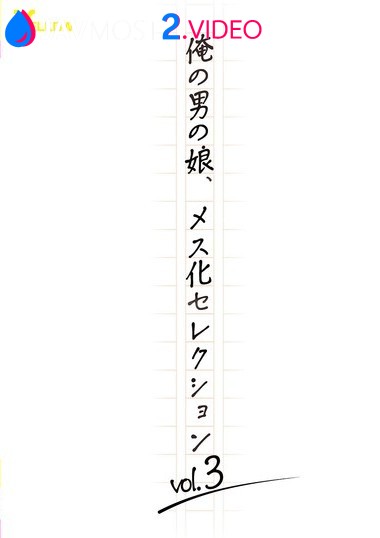 2.VIDEO
俺の男の娘、メス化セレクション
vol.3